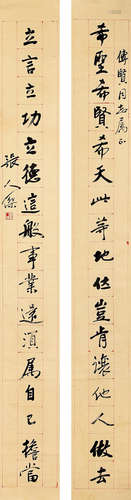 傳賢同志屬正
希聖希賢希天此等地位豈肯讓他人做去
立言立功立德這般事業還須屬自己擔當
張人傑